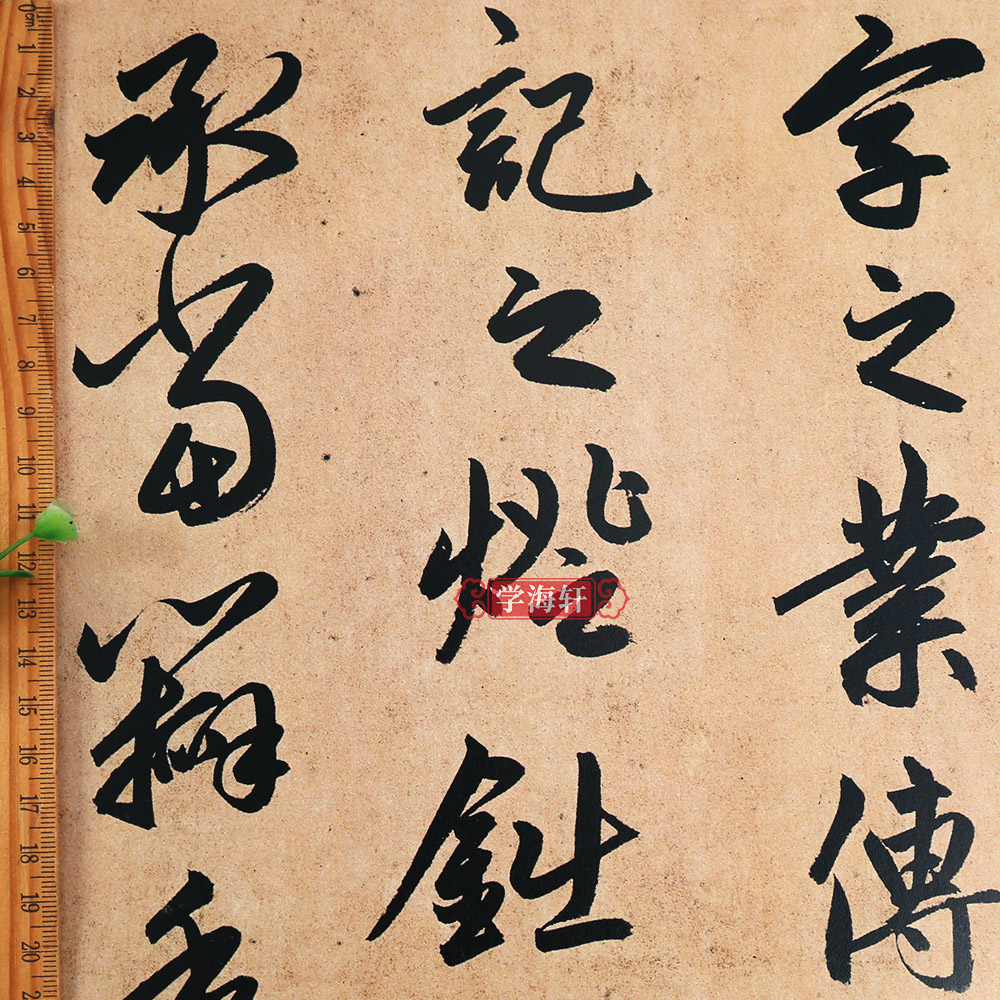 字之業傳
記之燈
承當
学海轩
0cm 1 2 3 4 5 6 7 8 9 10 11 12 13 14 15 16 17 18 19 20